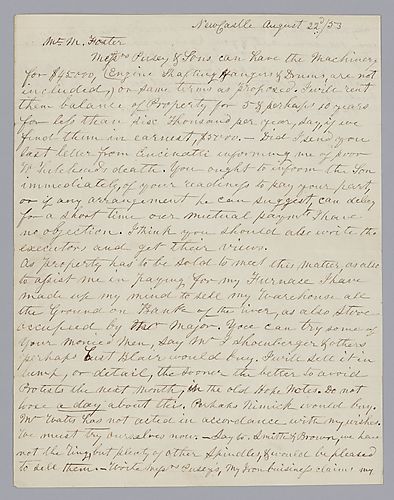 New Castle August 22d/53
Mr. M. Foster
Messrs Pusey & Sons can have the Machinery
for $45000, (Engine Shafting Hangers & Drums, are not
included,) on same terms as proposed. I will rent
them balance of Property for 5 & perhaps 10 years
for less than six Thousand per year, say, if we
find them in earnest, $5000. — Did I send you
last letter from Cincinatti informing me of poor
W death. You ought to inform the Son
immediately, of your readiness to pay your part,
or if any arrangement he can suggest, can delay
for a short time our mutual paymt I have
no objection. I think you should also write the
executors and get their views.
As property has to be sold to meet this matter, as also
to assist me in paying for my Furnace I have
made up my mind to sell my Warehouse all
the Ground on Bank of the river, as also Store
occupied by the Major. You can try some of
your monied Men, say Mr Shoenberger & others
perhaps Blair would buy. I will sell it in
lump, or detail, the sooner the better to avoid
Protests the next month, in the old Hope Notes. Do not
lose a day about this. Perhaps Nimick would buy.
Mr Watts has not acted in accordance with my wishes.
We must try ourselves now. — Say to Smith & Brown, we have
not the Ring, but plenty of other Spindles, & would be pleased
to sell them. — Write Messrs Pusey's, My Iron business claims my